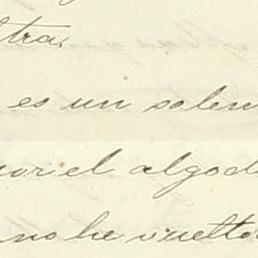 tra,
es un solem
por el algod
no he vuelto